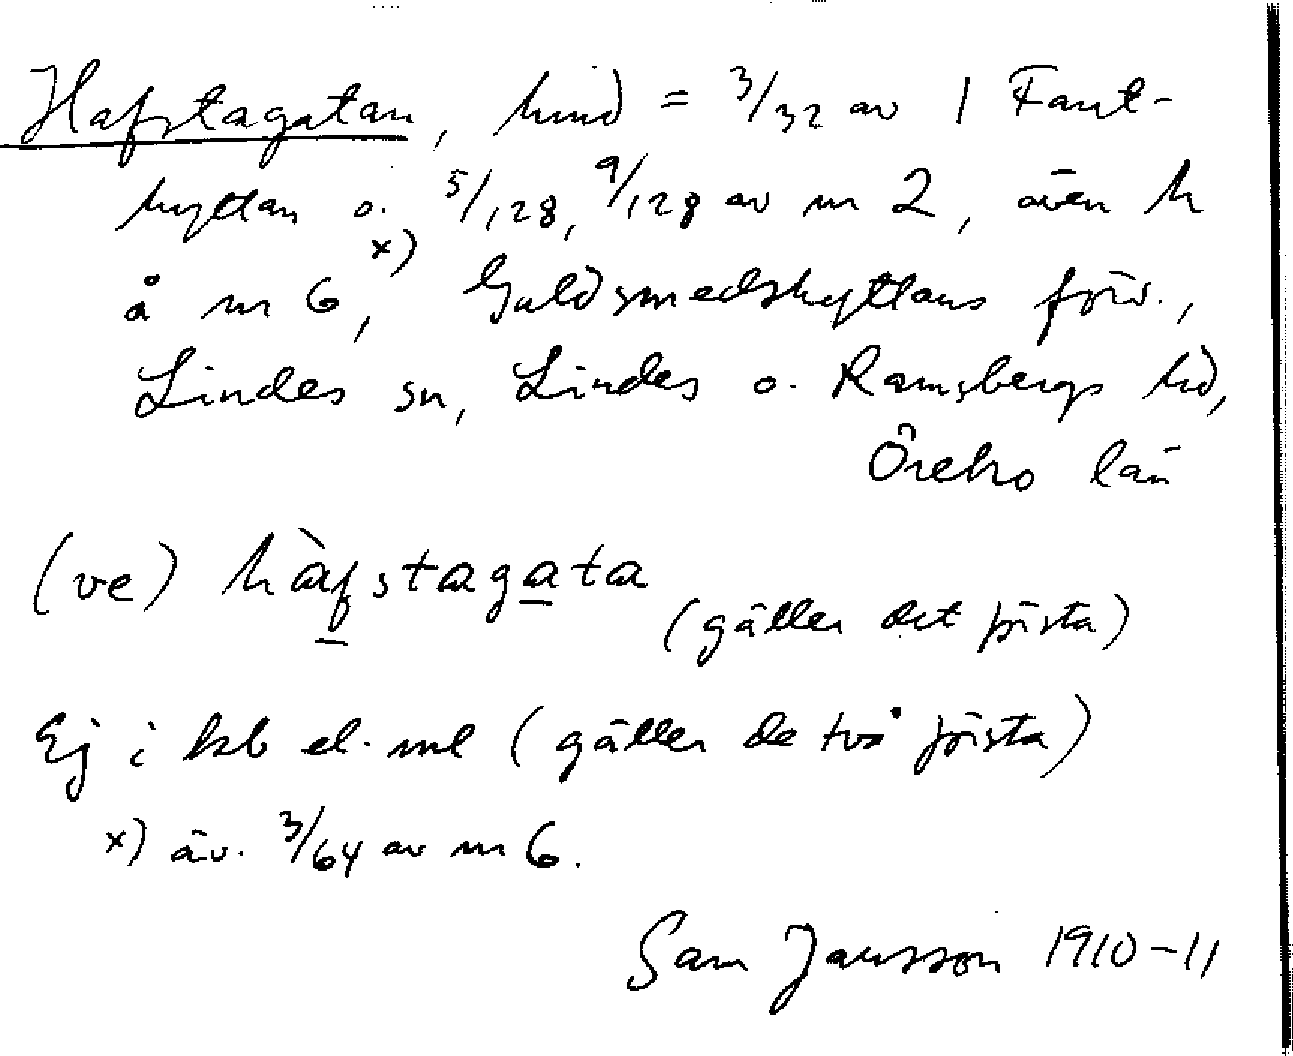 Hafstagatan, hmd = 3/32 av 1 Fant-
hyttan o. 5/128, 9/128 av nr 2, även h
å nr 6 x), Guldsmedshyttans förs.,
Lindes sn, Lindes o. Ramsbergs hd,
Örebro län
(ve) hàfstagata (gäller det första)
Ej i kb el. ml (gäller de två första)
x) äv. 3/64 av nr 6.
Sam Jansson 1910-11